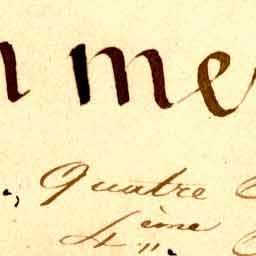 me
Quatre
4ème